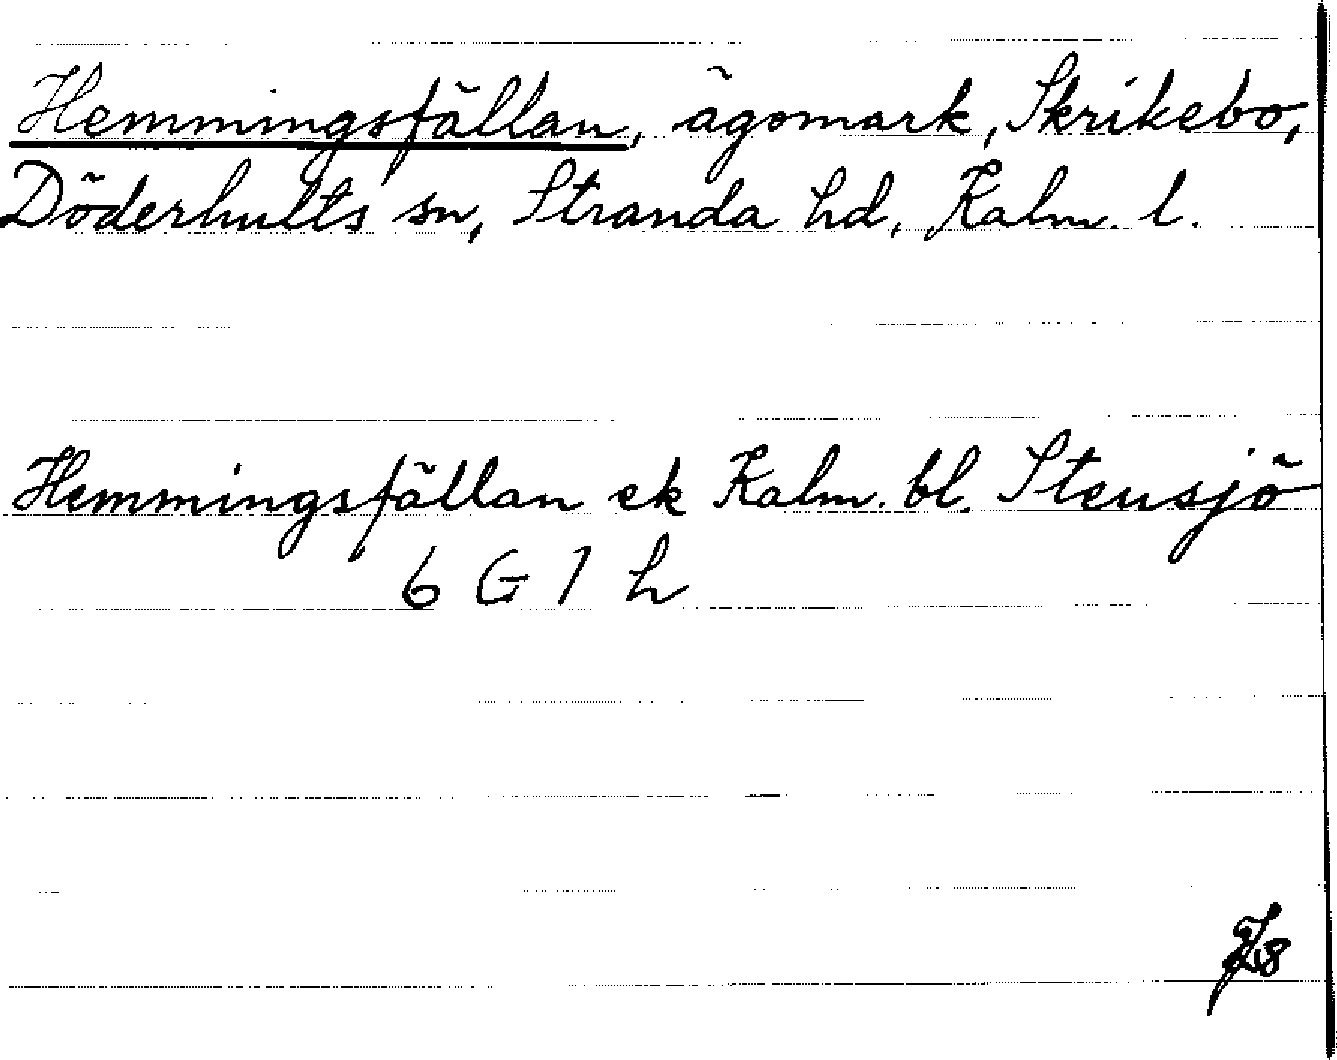 Hemmingsfällan, ägomark, Skrikebo,
Döderhults sn, Stranda hd, Kalm. l.
Hemmingsfällan ek Kalm. bl. Stensjö
6 G 1 h